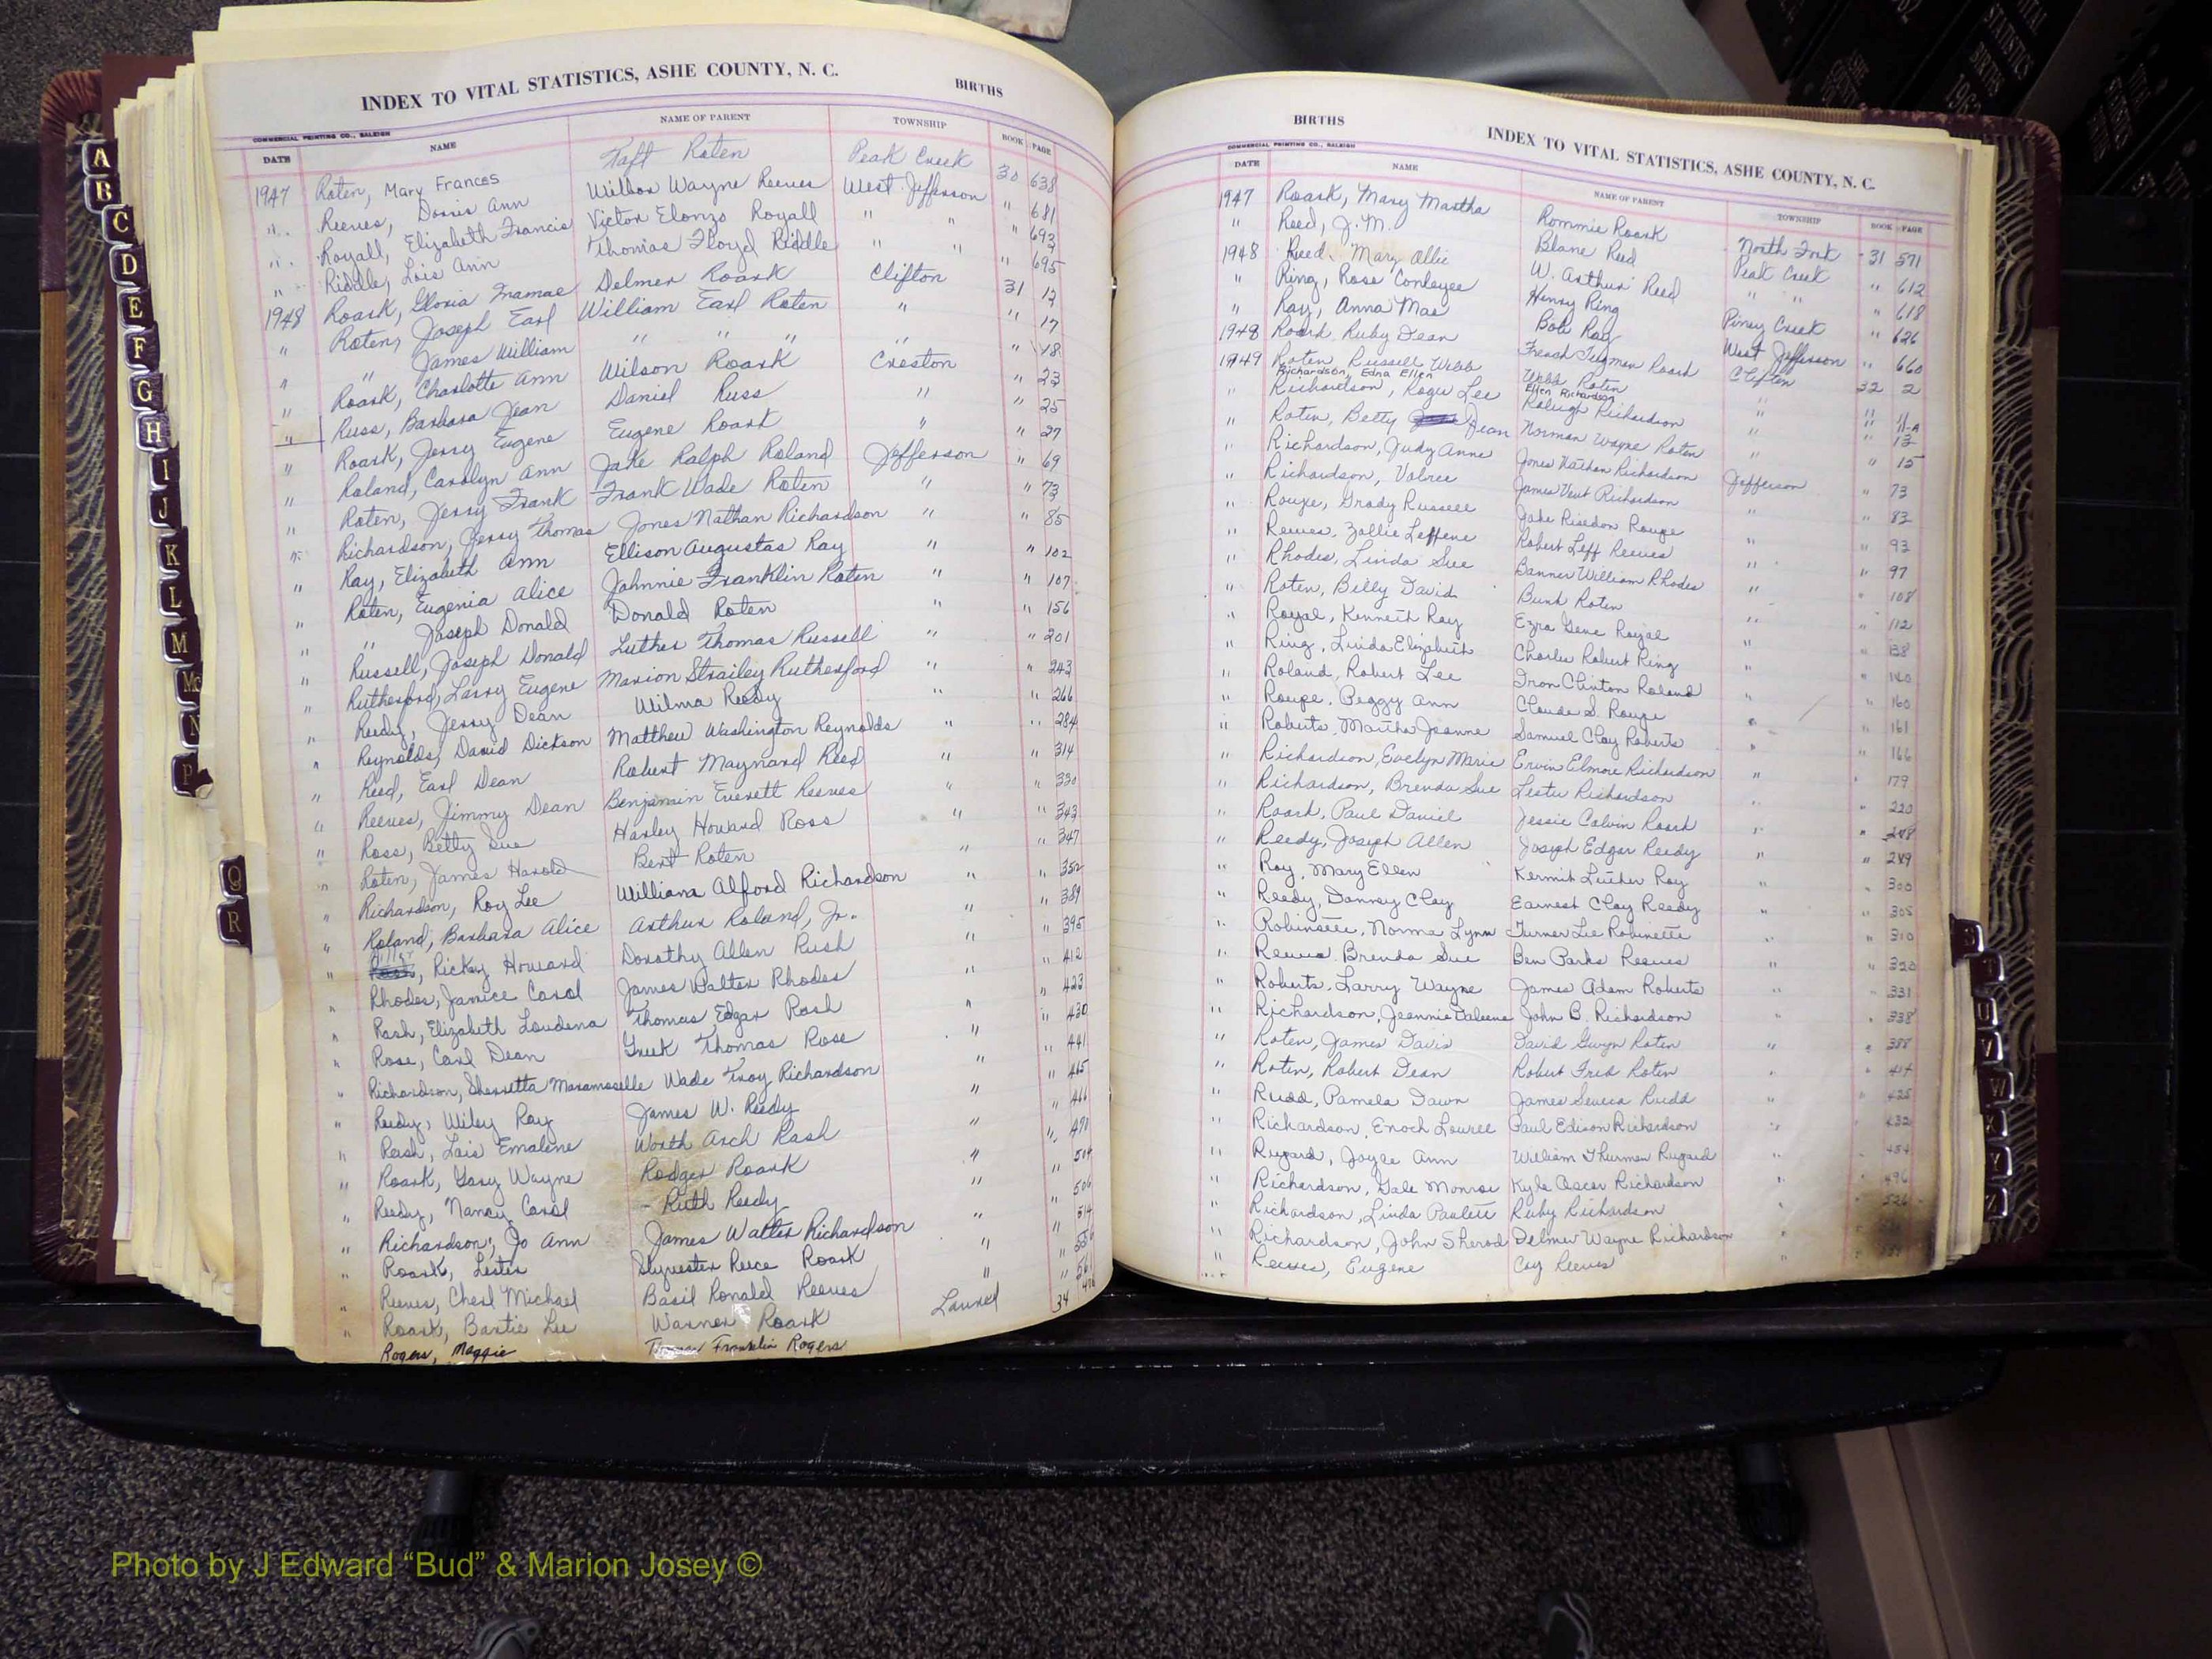 INDEX TO VITAL STATISTICS, ASHE COUNTY, N. C. BIRTHS
COMMERCIAL PRINTING CO., RALEIGH
DATE NAME NAME OF PARENT TOWNSHIP BOOK PAGE
1947 Roten, Mary Frances Taft Roten Peak Creek 30 638
" Reeves, Dorris Ann Wildon Wayne Reeves West Jefferson " 681
" Royall, Elizabeth Francis Victor Elonzo Royall " " " 693
" Riddle, Lois Ann Thomas Floyd Riddle " " " 695
1948 Roark, Gloria Framae Delmer Roark Clifton 31 12
" Roten, Joseph Earl William Earl Roten " " 17
" " James William " " " " " 18
" Roark, Charlotte Ann Wilson Roark Creston " 23
" Russ, Barbara Jean Daniel Russ " " 25
" Roark, Jerry Eugene Eugene Roark " " 27
" Roland, Carolyn Ann Jake Ralph Roland Jefferson " 69
" Roten, Jerry Frank Frank Wade Roten " " 73
" Richardson, Jerry Thomas Jones Nathan Richardson " " 85
" Ray, Elizabeth Ann Ellison Augustas Ray " " 102
" Roten, Eugenia Alice Johnnie Franklin Roten " " 107
" " Joseph Donald Donald Roten " " 156
" Russell, Joseph Donald Luther Thomas Russell " " 201
" Rutherford, Larry Eugene Marion Strailey Rutherford " " 243
" Reedy, Jerry Dean Wilma Reedy " " 266
" Reynolds, David Dickson Matthew Washington Reynolds " " 284
" Reed, Earl Dean Robert Maynard Reed " " 314
" Reeves, Jimmy Dean Benjamin Everett Reeves " " 330
" Ross, Betty Sue Harley Howard Ross " " 343
" Roten, James Harold Bert Roten " " 347
" Richardson, Roy Lee William Alford Richardson " " 352
" Roland, Barbara Alice Arthur Roland, Jr. " " 389
" Rickey Howard Dorothy Allen Rush " " 395
" Rhodes, Janice Carol James Walter Rhodes " " 412
" Rash, Elizabeth Loudena Thomas Edgar Rash " " 423
" Rose, Carl Dean Greek Thomas Rose " " 430
" Richardson, Sherretta Maramoselle Wade Troy Richardson " " 441
" Reedy, Wiley Ray James W. Reedy " " 465
" Rash, Lois Emalene Worth Arch Rash " " 466
" Roark, Gary Wayne Rodger Roark " "
" Reedy, Nancy Carol Ruth Reedy " " 504
" Richardson, Jo Ann James Walter Richardson " " 506
" Roark, Lester Sylvester Reece Roark " " 514
" Reeves, Cheri Michael Basil Ronald Reeves " "
" Roark, Bartie Lee Warner Roark " " 561
Rogers, Maggie Franklin Rogers Laurel 34
BIRTHS INDEX TO VITAL STATISTICS, ASHE COUNTY, N. C.
COMMERCIAL PRINTING CO., RALEIGH
DATE NAME NAME OF PARENT TOWNSHIP BOOK PAGE
1947 Roark, Mary Martha Rommie Roark North Fork 31 571
" Reed, J. M. Blane Reed Peak Creek " 612
1948 Reed, Mary Allie W. Arthur Reed " " " 618
" Ring, Rose Conleyee Henry Ring Piney Creek " 626
" Ray, Anna Mae Bob Ray West Jefferson " 660
1948 Roark Ruby Dean French Tilgman Roark Clifton 32 2
1949 Roten, Russell Webb Webb Roten " " 11
Richardson, Edna Ellen Ellen Richardson " 11-A
" Richardson, Roger Lee Raleigh Richardson " " 13
" Roten, Betty Jean Norman Wayne Roten " " 15
" Richardson, Judy Anne Jones Nathan Richardson Jefferson " 73
" Richardson, Valree James Vent Richardson " " 83
" Roupe, Grady Russell Jake Risedon Roupe " " 93
" Reeves, Zollie Leffene Robert Leff Reeves " " 97
" Rhodes, Linda Sue Banner William Rhodes " " 108
" Roten, Billy David Bunk Roten " " 112
" Royal, Kenneth Ray Ezra Gene Royal " " 138
" Ring, Linda Elizabeth Charles Robert Ring " " 140
" Roland, Robert Lee Iron Clinton Roland " " 160
" Roupe, Peggy Ann Claude S. Roupe " " 161
" Roberts, Martha Jeanne Samuel Clay Roberts " " 166
" Richardson, Evelyn Marie Ervin Elmore Richardson " " 179
" Richardson, Brenda Sue Lester Richardson " " 220
" Roark, Paul Daniel Jessie Calvin Roark " " 248
" Reedy, Joseph Allen Joseph Edgar Reedy " " 289
" Ray, Mary Ellen Kermit Luther Ray " " 300
" Reedy, Danney Clay Earnest Clay Reedy " " 305
" Robinette, Norma Lynn Turner Lee Robinette " " 310
" Reeves, Brenda Sue Ben Parks Reeves " " 320
" Roberts, Larry Wayne James Adam Roberts " " 331
" Richardson, Jeannie Daleene John B. Richardson " " 338
" Roten, James Davis David Gwyn Roten " " 388
" Roten, Robert Dean Robert Fred Roten " " 414
" Rudd, Pamela Dawn James Seneca Rudd " " 425
" Richardson, Enoch Lowree Paul Edison Richardson " " 432
" Rupard, Joyce Ann William Thurman Rupard " " 454
" Richardson, Gale Monroe Kyle Oscar Richardson " " 496
" Richardson, Linda Paulett Ruby Richardson " " 526
" Richardson, John Sherod Delmer Wayne Richardson
" Reeves, Eugene Coy Reeves
A
B
C
D
E
F
G
H
I
J
K
L
M
Mc
N
P
Q
R
S
T
U
V
W
X
Y
Z
VITAL STATISTICS BIRTHS
ASHE COUNTY
Photo by J Edward “Bud” & Marion Josey ©